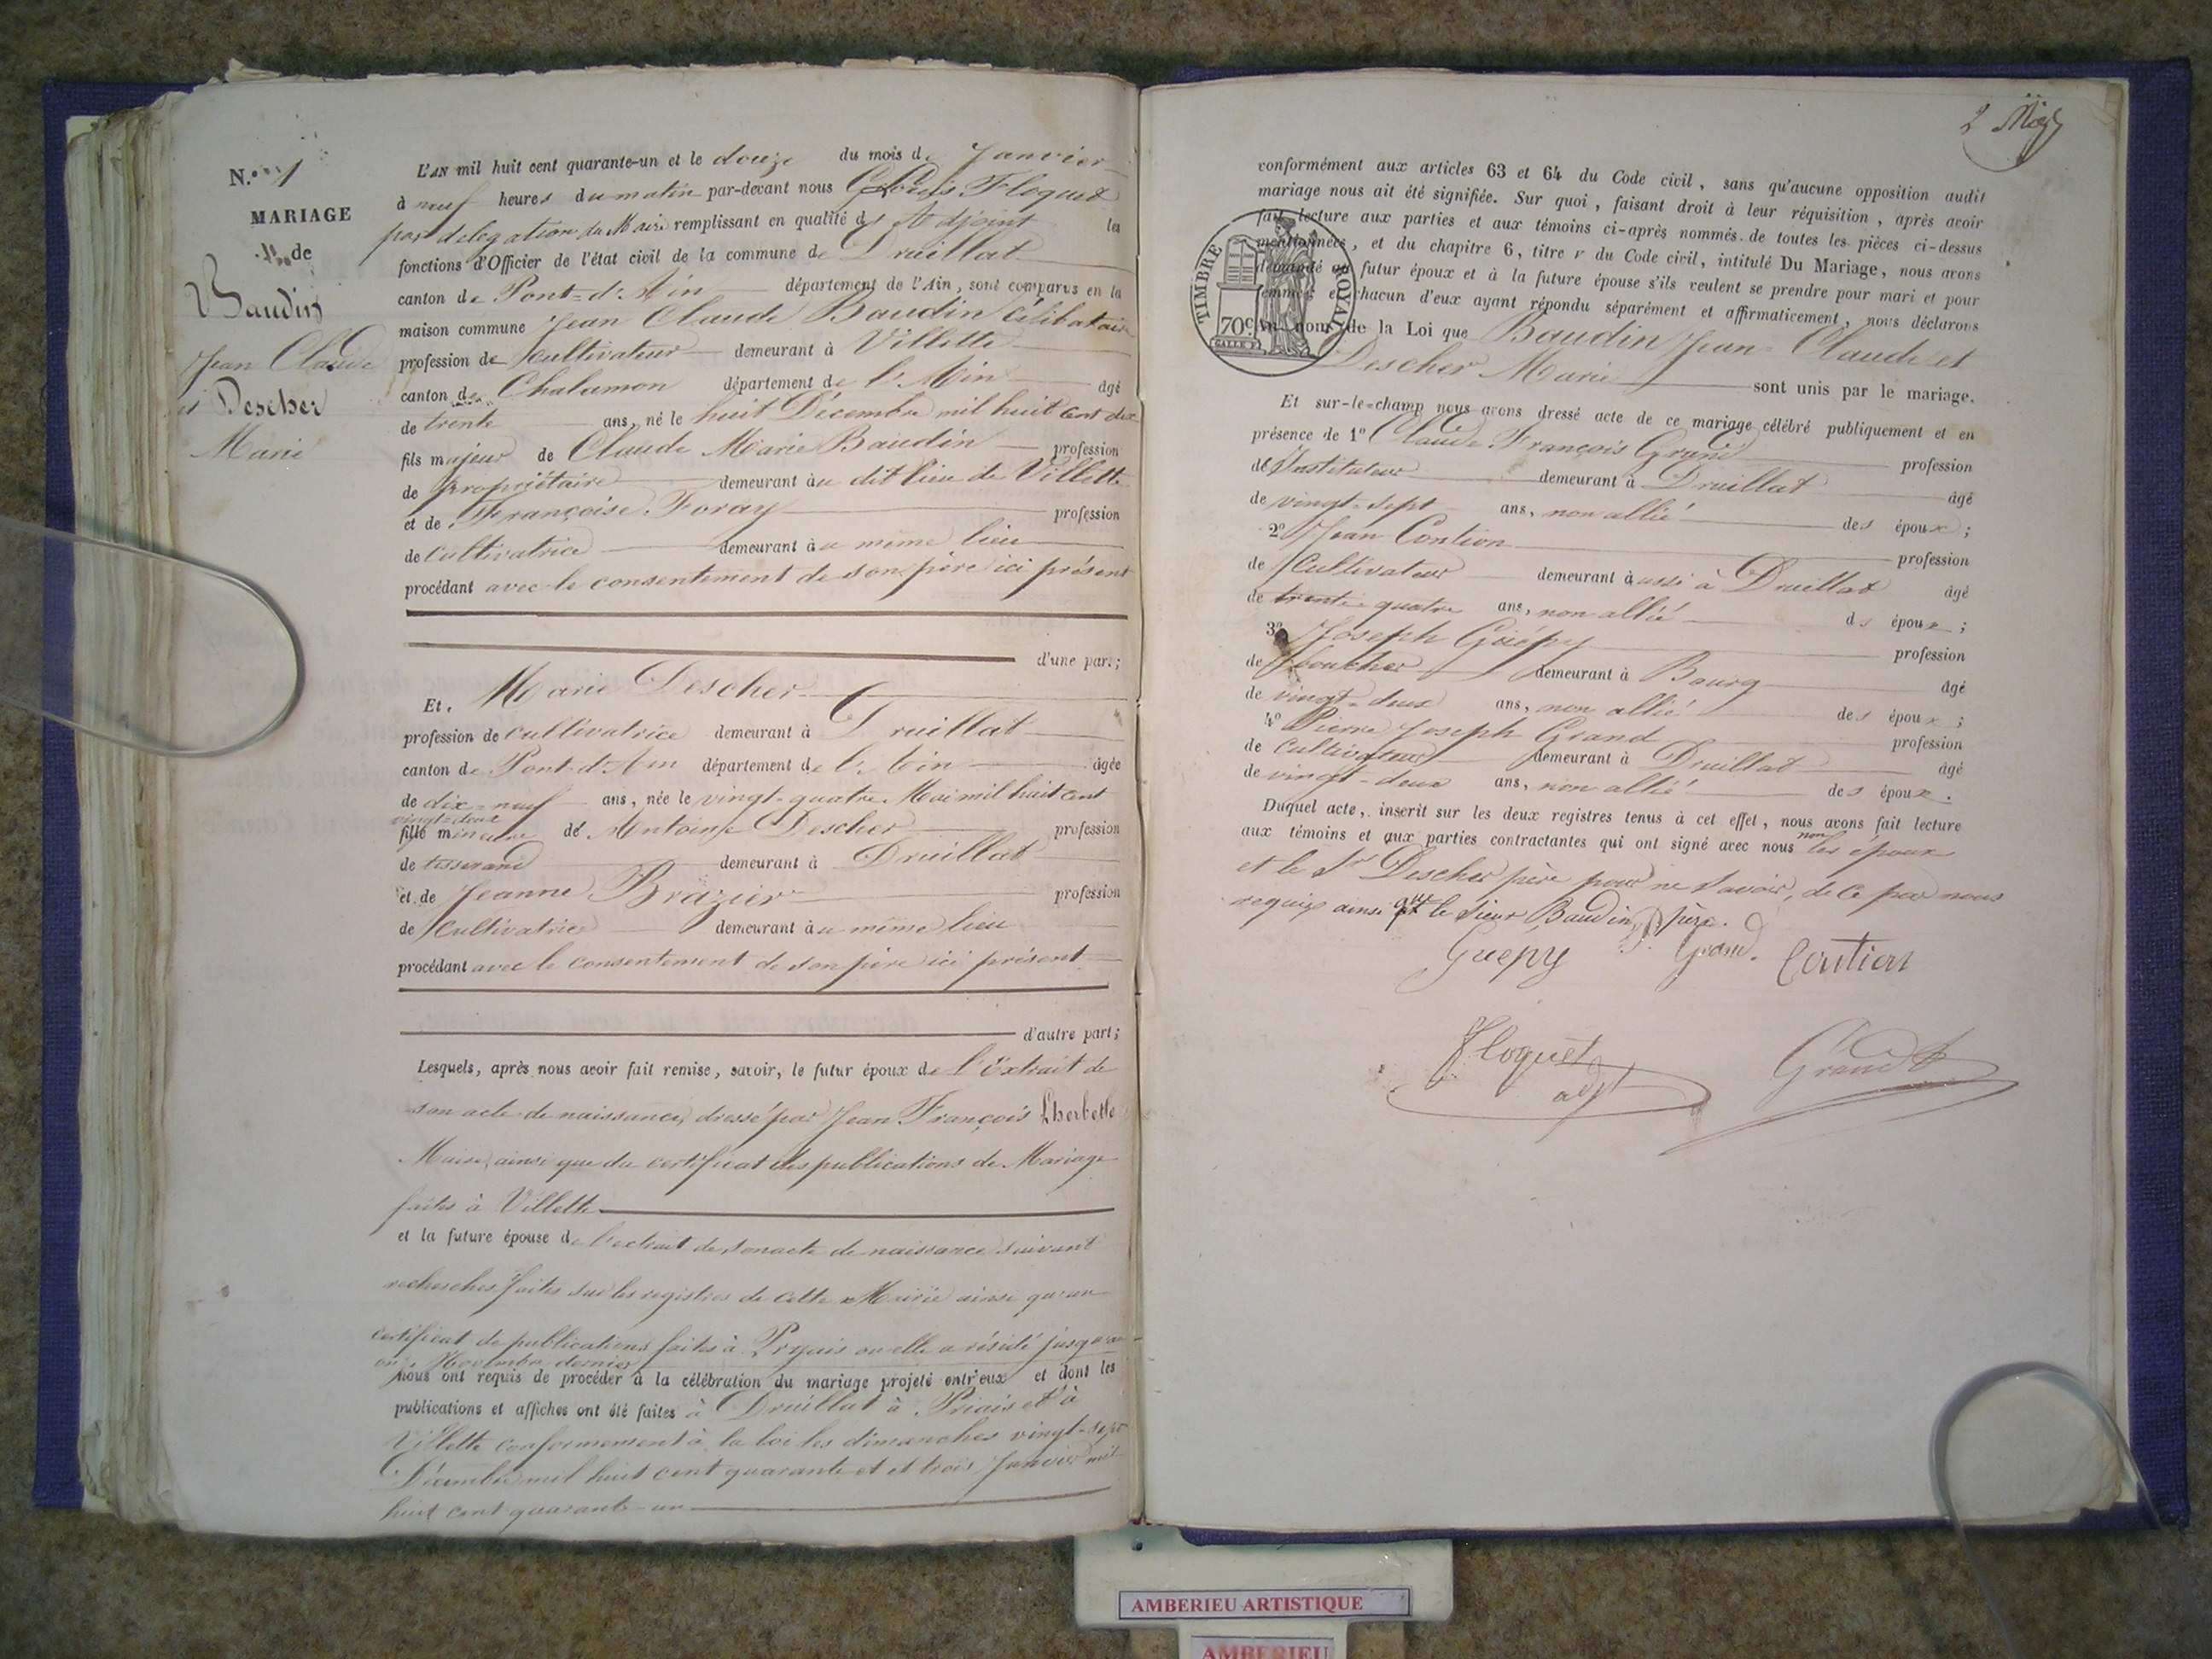 N.° 1
MARIAGE
de
Baudin
Jean Claude
et Descher
Marie
L'AN mil huit cent quarante-un et le douze du mois de Janvier
à neuf heures du matin par-devant nous Louis Floquet
par délégation du Maire remplissant en qualité d'Adjoint les
fonctions d'Officier de l'état civil de la commune de Druillat
canton de Pont-d'Ain département de l'Ain, sont comparus en la
maison commune Jean Claude Baudin célibataire
profession de cultivateur demeurant à Villette
canton de Chalamon département de l'Ain âgé
de trente ans, né le huit Décembre mil huit cent dix
fils majeur de Claude Marie Baudin profession
de propriétaire demeurant au dit lieu de Villette
et de Françoise Foray profession
de cultivatrice demeurant au même lieu
procédant avec le consentement de son père ici présent
d'une part;
Et, Marie Descher
profession de cultivatrice demeurant à Druillat
canton de Pont-d'Ain département de l'Ain âgée
de dix-neuf ans, née le vingt-quatre Mai mil huit cent
vingt-deux
fille mineure de Antoine Descher profession
de tisserand demeurant à Druillat
et de Jeanne Brazier profession
de cultivatrice demeurant au même lieu
procédant avec le consentement de son père ici présent
d'autre part;
Lesquels, après nous avoir fait remise, savoir, le futur époux de l'Extrait de
son acte de naissance, dressé par Jean François Lherbette
Maire, ainsi que du certificat des publications de Mariage
faites à Villette
et la future épouse de l'extrait de son acte de naissance suivant
recherches faites sur les registres de cette Mairie ainsi qu'un
certificat de publications faites à Pryais ou elle a résidé jusqu'au
onze Novembre dernier
nous ont requis de procéder à la célébration du mariage projeté entr'eux et dont les
publications et affiches ont été faites à Druillat à Priais et à
Villette conformément à la loi les dimanches vingt-sept
Décembre mil huit cent quarante et et trois Janvier mil
huit cent quarante-un
conformément aux articles 63 et 64 du Code civil, sans qu'aucune opposition audit
mariage nous ait été signifiée. Sur quoi, faisant droit à leur réquisition, après avoir
fait lecture aux parties et aux témoins ci-après nommés de toutes les pièces ci-dessus
mentionnées, et du chapitre 6, titre v du Code civil, intitulé Du Mariage, nous avons
demandé au futur époux et à la future épouse s'ils veulent se prendre pour mari et pour
femme; et chacun d'eux ayant répondu séparément et affirmativement, nous déclarons
au nom de la Loi que Baudin Jean-Claude et
Descher Marie sont unis par le mariage.
TIMBRE ROYAL
70c
Et sur-le-champ nous avons dressé acte de ce mariage célébré publiquement et en
présence de 1° Claude François Grand profession
d'Instituteur demeurant à Druillat âgé
de vingt-sept ans, non allié des époux;
2° Jean Contion profession
de Cultivateur demeurant aussi à Druillat âgé
de trente-quatre ans, non allié ds époux;
3° Joseph Guépy profession
de boucher demeurant à Bourg âgé
de vingt-deux ans, non allié des époux;
4° Pierre Joseph Grand profession
de Cultivateur demeurant à Druillat âgé
de vingt-deux ans, non allié des époux.
Duquel acte, inscrit sur les deux registres tenus à cet effet, nous avons fait lecture
aux témoins et aux parties contractantes qui ont signé avec nous non les époux
et le Sr Descher père pour ne savoir, de ce par nous
requis ainsi que le sieur Baudin, père.
Guepy P. Grand. Contion
Floquet
adjt
Grand
AMBERIEU ARTISTIQUE
AMBERIEU